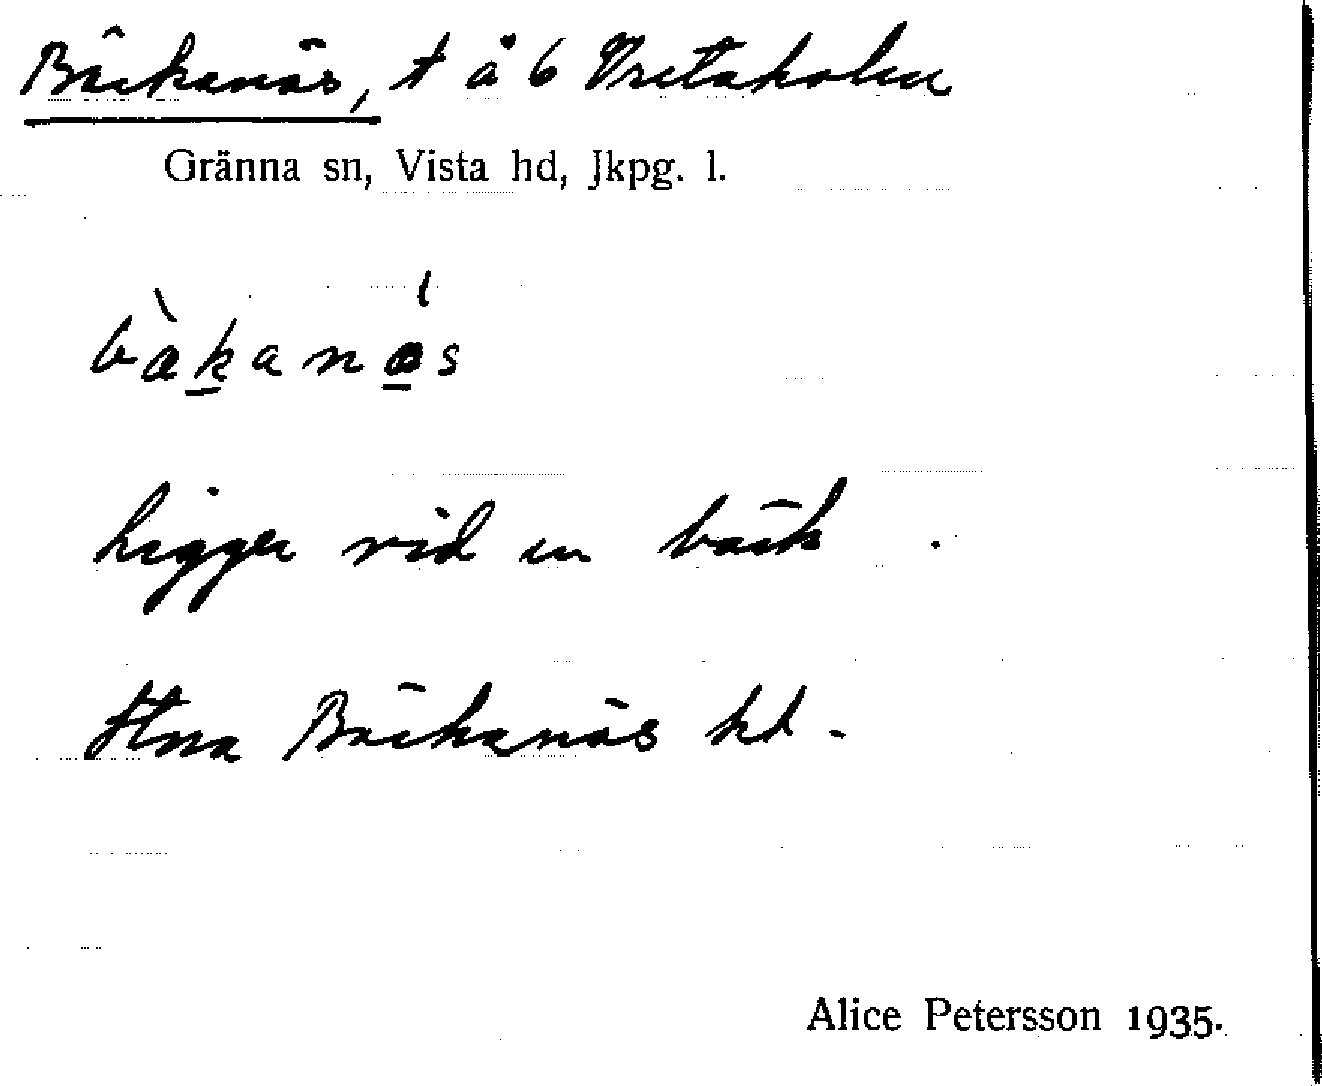 Bäckanäs, t å 6 Vretaholm
Gränna sn, Vista hd, Jkpg. l.
bàkanäs
ligger vid en bäck .
Hna Bäckanäs hd.
Alice Petersson 1935.